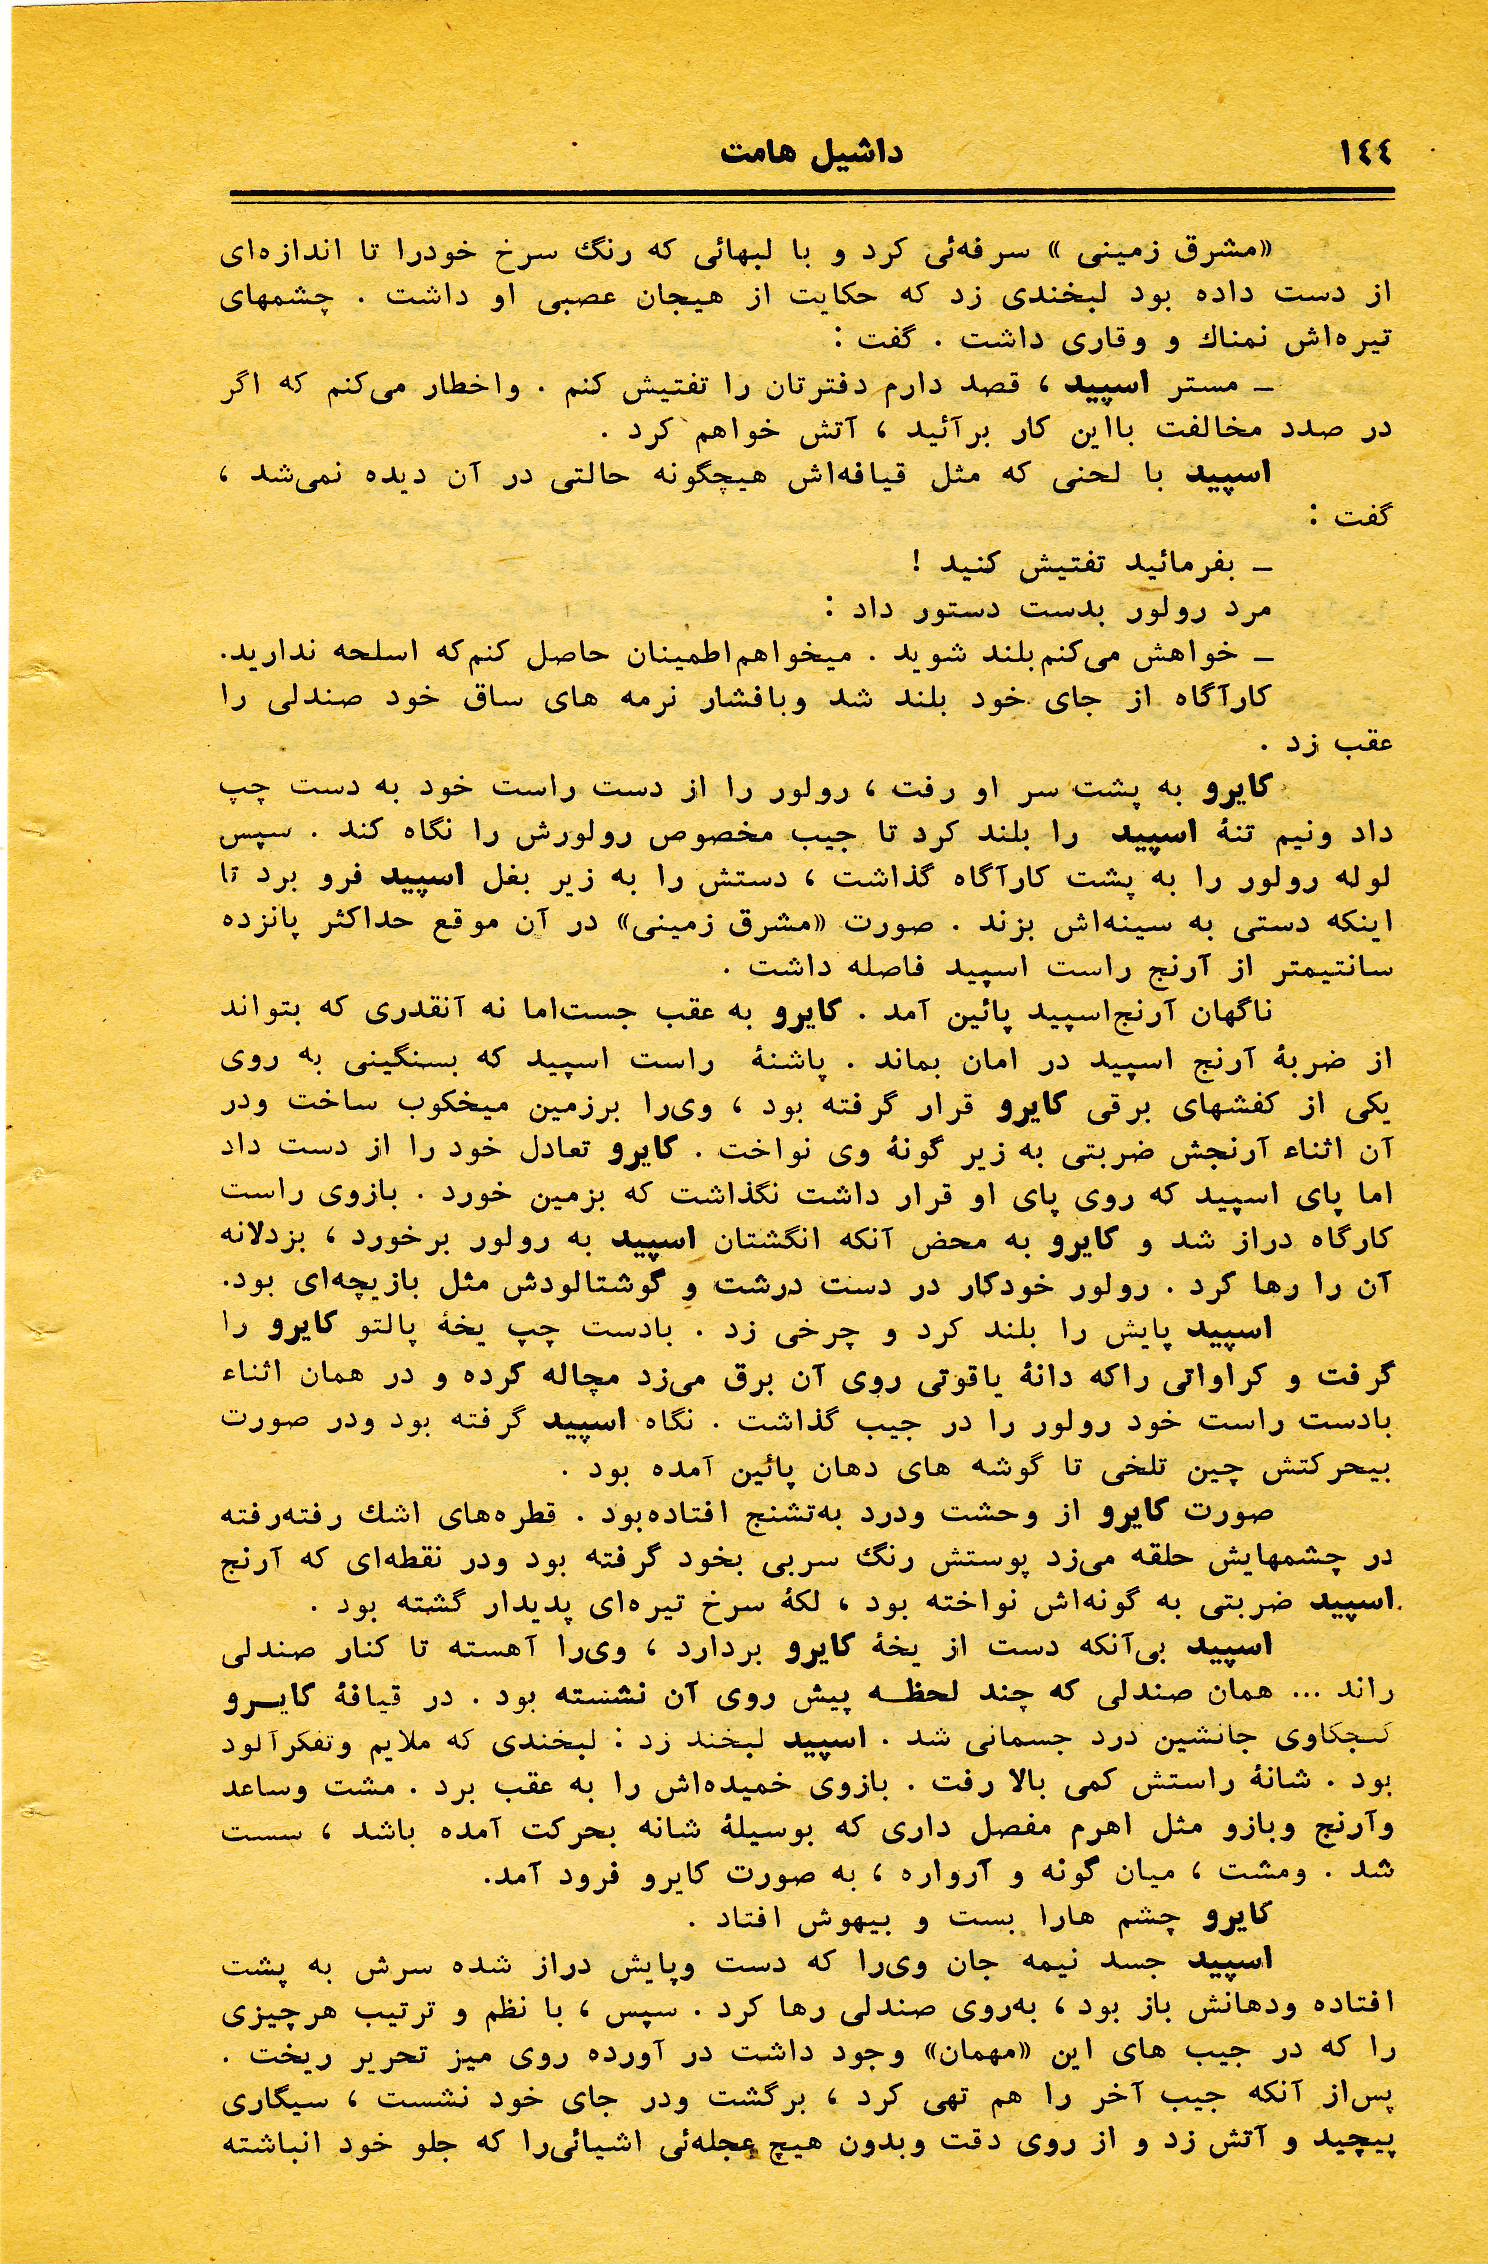 ١٤٤
داشیل هامت
«مشرق زمینی» سرفه‌ئی کرد و با لبهائی که رنگ سرخ خودرا تا اندازه‌ای
از دست داده بود لبخندی زد که حکایت از هیجان عصبی او داشت . چشمهای
تیره‌اش نمناك و وقاری داشت . گفت :
ـ مستر اسپید ، قصد دارم دفترتان را تفتیش کنم . واخطار می‌کنم که اگر
در صدد مخالفت بااین کار برآئید ، آتش خواهم کرد .
اسپید با لحنی که مثل قیافه‌اش هیچگونه حالتی در آن دیده نمی‌شد ،
گفت :
ـ بفرمائید تفتیش کنید !
مرد رولور بدست دستور داد :
ـ خواهش می‌کنم بلند شوید . میخواهم اطمینان حاصل کنم که اسلحه ندارید.
کارآگاه از جای خود بلند شد وبافشار نرمه های ساق خود صندلی را
عقب زد .
کایرو به پشت سر او رفت ، رولور را از دست راست خود به دست چپ
داد ونیم تنهٔ اسپید را بلند کرد تا جیب مخصوص رولورش را نگاه کند . سپس
لوله رولور را به پشت کارآگاه گذاشت ، دستش را به زیر بغل اسپید فرو برد تا
اینکه دستی به سینه‌اش بزند . صورت «مشرق زمینی» در آن موقع حداکثر پانزده
سانتیمتر از آرنج راست اسپید فاصله داشت .
ناگهان آرنج‌اسپید پائین آمد . کایرو به عقب جست‌اما نه آنقدری که بتواند
از ضربهٔ آرنج اسپید در امان بماند . پاشنهٔ راست اسپید که بسنگینی به روی
یکی از کفشهای برقی کایرو قرار گرفته بود ، وی‌را برزمین میخکوب ساخت ودر
آن اثناء آرنجش ضربتی به زیر گونهٔ وی نواخت . کایرو تعادل خود را از دست داد
اما پای اسپید که روی پای او قرار داشت نگذاشت که بزمین خورد . بازوی راست
کارگاه دراز شد و کایرو به محض آنکه انگشتان اسپید به رولور برخورد ، بزدلانه
آن را رها کرد . رولور خودکار در دست درشت و گوشتالودش مثل بازیچه‌ای بود.
اسپید پایش را بلند کرد و چرخی زد . بادست چپ یخهٔ پالتو کایرو را
گرفت و کراواتی راکه دانهٔ یاقوتی روی آن برق می‌زد مچاله کرده و در همان اثناء
بادست راست خود رولور را در جیب گذاشت . نگاه اسپید گرفته بود ودر صورت
بیحرکتش چین تلخی تا گوشه های دهان پائین آمده بود .
صورت کایرو از وحشت ودرد به‌تشنج افتاده‌بود . قطره‌های اشك رفته‌رفته
در چشمهایش حلقه می‌زد پوستش رنگ سربی بخود گرفته بود ودر نقطه‌ای که آرنج
اسپید ضربتی به گونه‌اش نواخته بود ، لکهٔ سرخ تیره‌ای پدیدار گشته بود .
اسپید بی‌آنکه دست از یخهٔ کایرو بردارد ، وی‌را آهسته تا کنار صندلی
راند ... همان صندلی که چند لحظـه پیش روی آن نشسته بود . در قیافهٔ کایـرو
کنجکاوی جانشین درد جسمانی شد . اسپید لبخند زد : لبخندی که ملایم وتفکرآلود
بود . شانهٔ راستش کمی بالا رفت . بازوی خمیده‌اش را به عقب برد . مشت وساعد
وآرنج وبازو مثل اهرم مفصل داری که بوسیلهٔ شانه بحرکت آمده باشد ، سست
شد . ومشت ، میان گونه و آرواره ، به صورت کایرو فرود آمد.
کایرو چشم هارا بست و بیهوش افتاد .
اسپید جسد نیمه جان وی‌را که دست وپایش دراز شده سرش به پشت
افتاده ودهانش باز بود ، به‌روی صندلی رها کرد . سپس ، با نظم و ترتیب هرچیزی
را که در جیب های این «مهمان» وجود داشت در آورده روی میز تحریر ریخت .
پس‌از آنکه جیب آخر را هم تهی کرد ، برگشت ودر جای خود نشست ، سیگاری
پیچید و آتش زد و از روی دقت وبدون هیچ عجله‌ئی اشیائی‌را که جلو خود انباشته